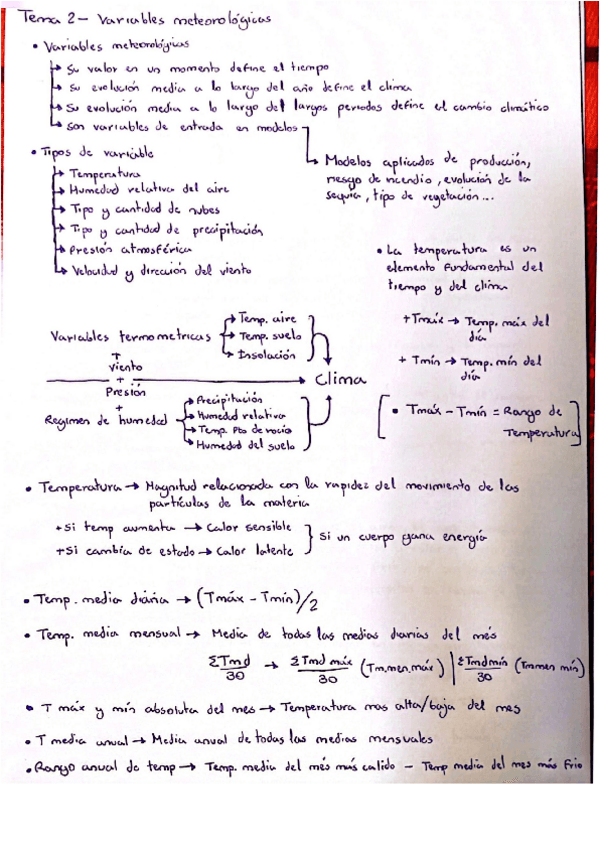 Tema 2 - Variables meteorológicas
• Variables meteorológicas
↳ Su valor en un momento define el tiempo
↳ Su evolución media a lo largo del año define el clima
↳ Su evolución media a lo largo del largos periodos define el cambio climático
↳ Son variables de entrada en modelos
↳ Modelos aplicados de producción,
riesgo de incendio, evolución de la
sequía, tipo de vegetación...
• Tipos de variable
↳ Temperatura
↳ Humedad relativa del aire
↳ Tipo y cantidad de nubes
↳ Tipo y cantidad de precipitación
↳ Presión atmosférica
↳ Velocidad y dirección del viento
• La temperatura es un
elemento fundamental del
tiempo y del clima
+ Tmáx → Temp. máx del
día
+ Tmín → Temp. mín del
día
[• Tmáx - Tmín = Rango de
Temperatura]
Variables termometricas
→ Temp. aire
→ Temp. suelo
→ Insolación
+
viento
+
Presión
+
Regimen de humedad
→ Precipitación
→ Humedad relativa
→ Temp. Pto de rocío
→ Humedad del suelo
→ Clima
• Temperatura → Magnitud relacionada con la rapidez del movimiento de las
partículas de la materia
+ Si temp aumenta → Calor sensible
+ Si cambia de estado → Calor latente
} Si un cuerpo gana energía
• Temp. media diaria → (Tmáx - Tmín)/2
• Temp. media mensual → Media de todas las medias diarias del més
ΣTmd/30 → ΣTmd máx/30 (Tm.men.máx) | ΣTmdmín/30 (Tmmen mín)
• T máx y mín absoluta del mes → Temperatura mas alta/baja del mes
• T media anual → Media anual de todas las medias mensuales
• Rango anual de temp → Temp. media del més más calido - Temp media del mes más frio